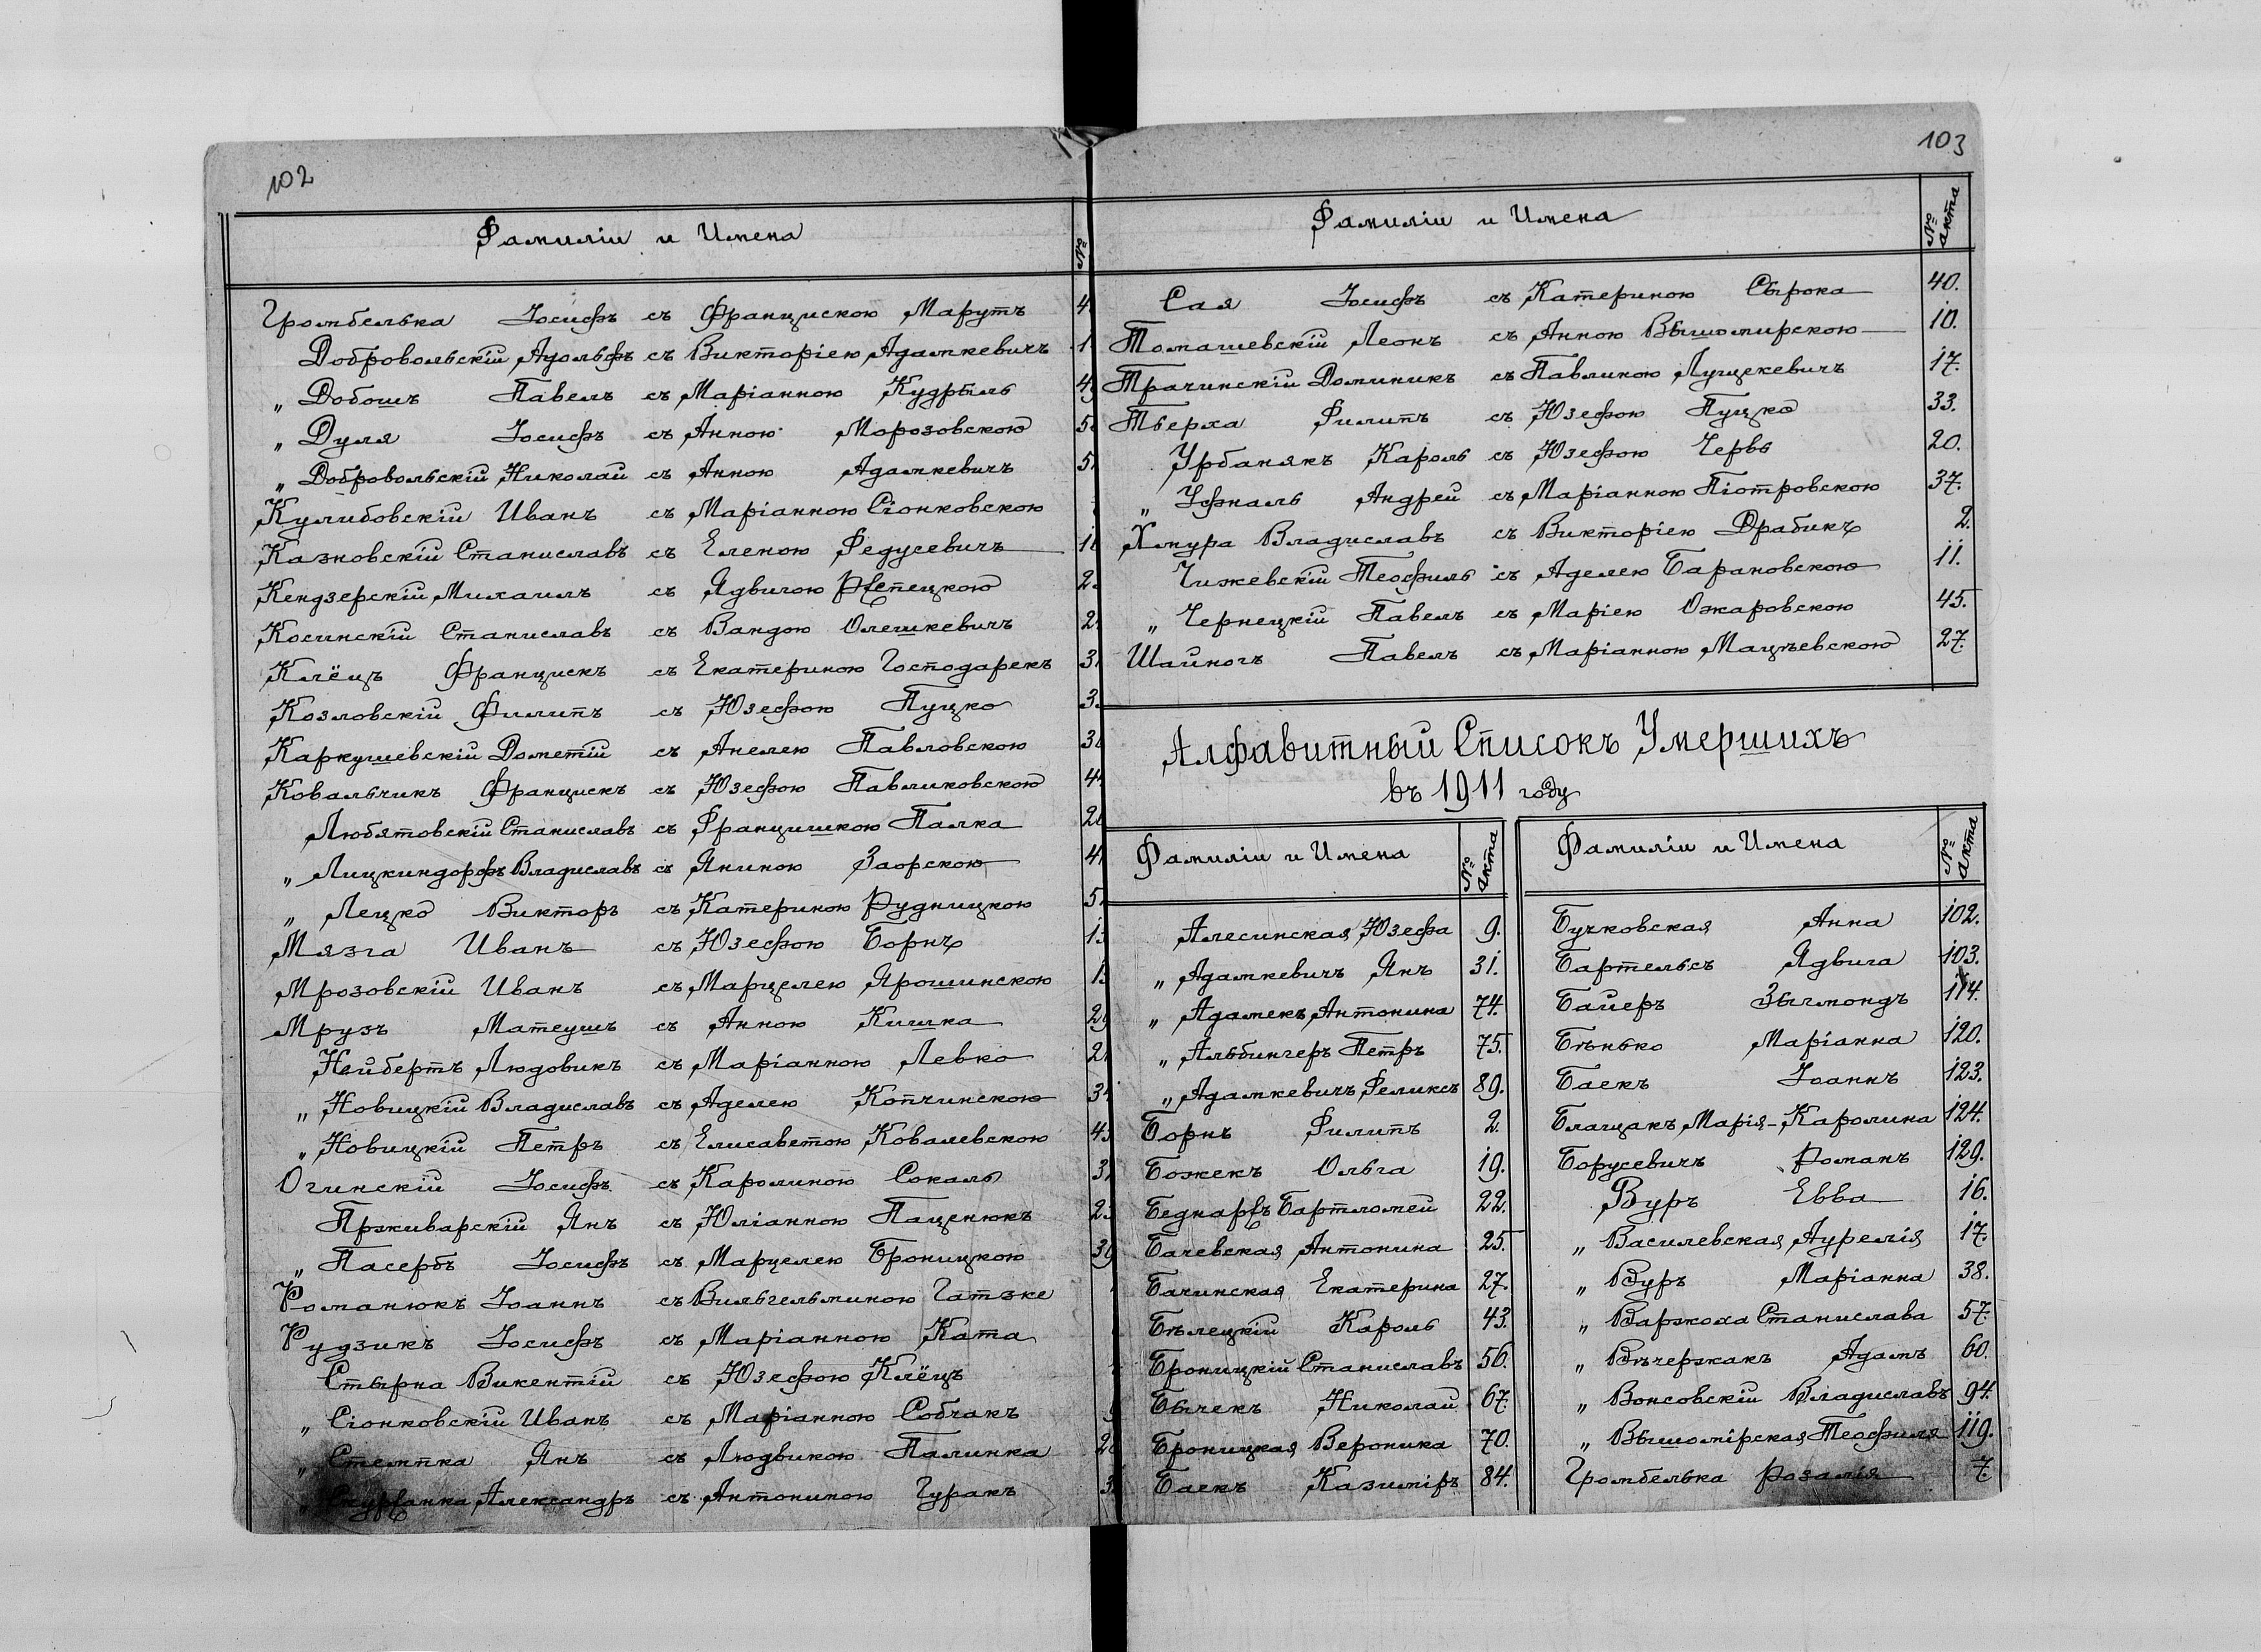 102
Фамиліи и Имена
№
Громбелька Іосифъ съ Францискою Марутъ 4
Добровольскій Адольфъ съ Викторіею Адамкевичъ 1
„ Добошъ Павелъ съ Маріанною Кудрыль 4
„ Дуля Іосифъ съ Анною Морозовскою 5
„ Добровольскій Николай съ Анною Адамкевичъ 5
Кулибовскій Иванъ съ Маріанною Сіонковскою
Казновскій Станиславъ съ Еленою Федусевичъ 1
Кендзерскій Михаилъ съ Ядвигою Рѣпецкою 2
Косинскій Станиславъ съ Вандою Олешкевичъ 2
Клёцъ Францискъ съ Екатериною Господарекъ 3
Козловскій Филипъ съ Юзефою Пуцко 3
Каркушевскій Дометій съ Анелею Павловскою 3
Ковальчикъ Францискъ съ Юзефою Павликовскою 4
Любятовскій Станиславъ съ Францишкою Палка 2
„ Лицкиндорфъ Владиславъ съ Яниною Заорскою 4
„ Лецко Викторъ съ Катериною Рудницкою 5
Мязга Иванъ съ Юзефою Борнъ 1
Мрозовскій Иванъ съ Марцелею Ярошинскою 1
Мрузъ Матеушъ съ Анною Кишка 2
Нейбертъ Людовикъ съ Маріанною Левко 2
„ Новицкій Владиславъ съ Аделею Копчинскою 3
„ Новицкій Петръ съ Елисаветою Ковалевскою 4
Огинскій Іосифъ съ Каролиною Сокалъ 3
Прживарскій Янъ съ Юліанною Паценюкъ 2
„ Пасербъ Іосифъ съ Марцелею Броницкою 3
Романюкъ Іоаннъ съ Вильгельминою Гатзке
Рудзикъ Іосифъ съ Маріанною Ката
Стырна Викентій съ Юзефою Клёцъ
„ Сіонковскій Иванъ съ Маріанною Собчакъ
„ Стемпка Янъ съ Людвикою Палинка 2
„ Александръ съ Антониною Гуракъ 3
103
Фамиліи и Имена
№ акта
Сая Іосифъ съ Катериною Сырока 40.
Томашевскій Леонъ съ Анною Вышомирскою 10.
Трачинскій Доминикъ съ Павлиною Лущекевичъ 17.
Тверха Филипъ съ Юзефою Пуцко 33.
Урбанякъ Кароль съ Юзефою Червь 20.
„ Уфналь Андрей съ Маріанною Піотровскою 37.
Хмура Владиславъ съ Викторіею Драбикъ 2.
Чижевскій Теофиль съ Аделею Барановскою 11.
„ Чернецкій Павелъ съ Маріею Ожаровскою 45.
Шайногъ Павелъ съ Маріанною Мацѣевскою 27.
Алфавитный Списокъ Умершихъ
въ 1911 году
Фамиліи и Имена
№ акта
Алесинская Юзефа 9.
„ Адамкевичъ Янъ 31.
„ Адамекъ Антонина 74.
„ Альбингеръ Петръ 75.
„ Адамкевичъ Феликсъ 89.
Борнъ Филипъ 2.
Божекъ Ольга 19.
Беднаржъ Бартломей 22.
Бачевская Антонина 25.
Бачинская Екатерина 27.
Бѣлецкій Кароль 43.
Броницкій Станиславъ 56.
Бычекъ Николай 67.
Броницкая Вероника 70.
Баекъ Казиміръ 84.
Фамиліи и Имена
№ акта
Бучковская Анна 102.
Бартельсъ Ядвига 103.
Байеръ Зыгмондъ 114.
Бѣнько Маріанна 120.
Баекъ Іоаннъ 123.
Блащакъ Марія-Каролина 124.
Борусевичъ Романъ 129.
Вуръ Евва 16.
„ Василевская Аурелія 17.
„ Вуръ Маріанна 38.
„ Варжоха Станислава 57.
„ Вѣчержакъ Адамъ 60.
„ Вонсовскій Владиславъ 94.
„ Вышомірская Теофиля 119.
Громбелька Розалія 7.